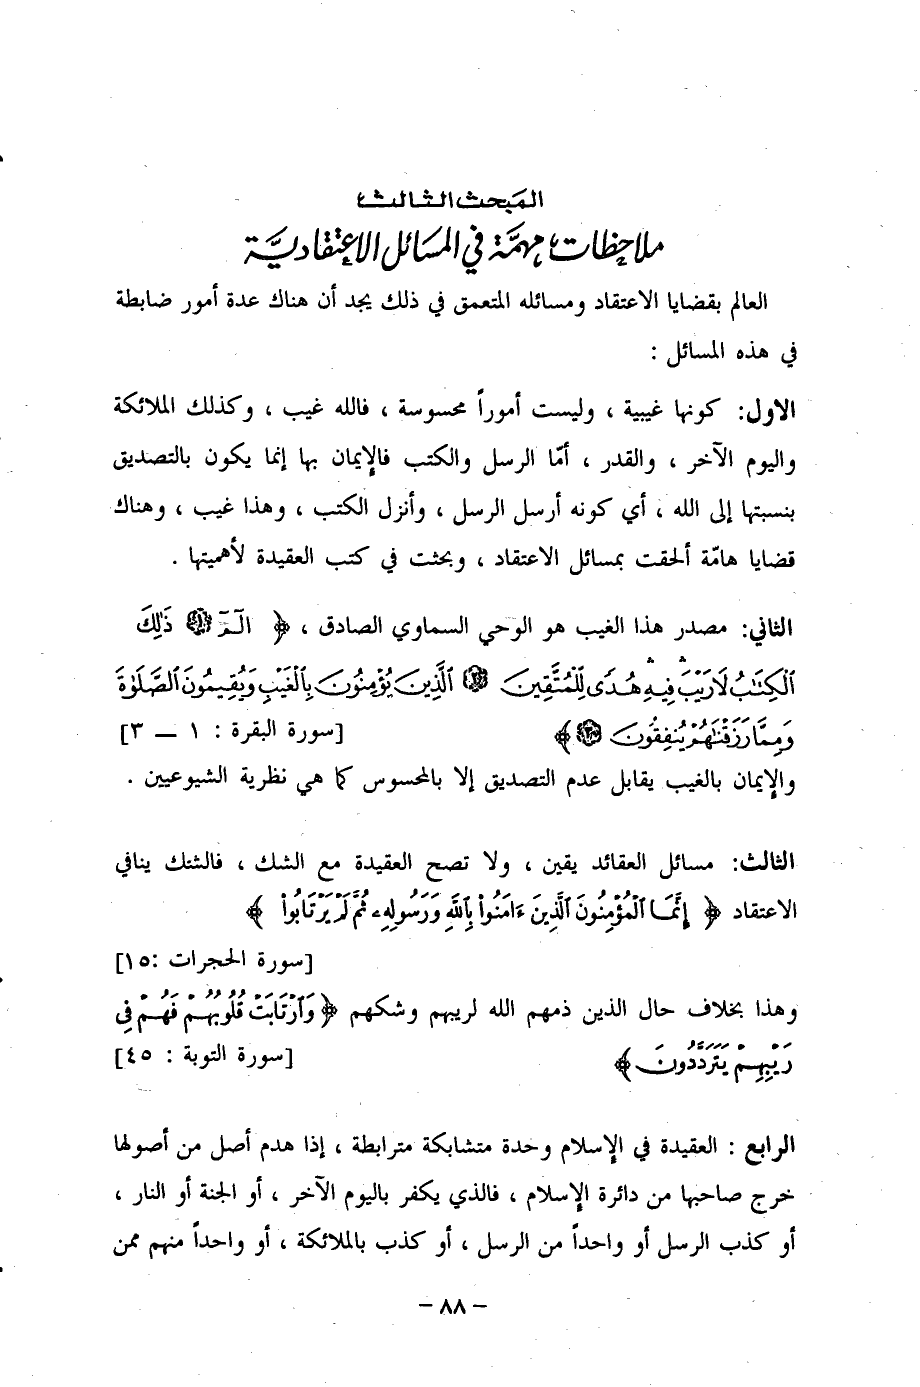 المبحث الثالث
ملاحظات مهمّة في المسَائل الاعتقاديَّة
العالم بقضايا الاعتقاد ومسائله المتعمق في ذلك يجد أن هناك عدة أمور ضابطة
في هذه المسائل :
الاول: كونها غيبية ، وليست أموراً محسوسة ، فالله غيب ، وكذلك الملائكة
واليوم الآخر ، والقدر ، أمّا الرسل والكتب فالإيمان بها إنما يكون بالتصديق
بنسبتها إلى الله ، أي كونه أرسل الرسل ، وأنزل الكتب ، وهذا غيب ، وهناك
قضايا هامّة ألحقت بمسائل الاعتقاد ، وبحثت في كتب العقيدة لأهميتها .
الثاني: مصدر هذا الغيب هو الوحي السماوي الصادق ، ﴿ الٓمٓ ﴿١﴾ ذَٰلِكَ
ٱلْكِتَٰبُ لَا رَيْبَ ۛ فِيهِ ۛ هُدًى لِّلْمُتَّقِينَ ﴿٢﴾ ٱلَّذِينَ يُؤْمِنُونَ بِٱلْغَيْبِ وَيُقِيمُونَ ٱلصَّلَوٰةَ
وَمِمَّا رَزَقْنَٰهُمْ يُنفِقُونَ ﴿٣﴾ ﴾ [سورة البقرة : ١ — ٣]
والإيمان بالغيب يقابل عدم التصديق إلا بالمحسوس كما هي نظرية الشيوعيين .
الثالث: مسائل العقائد يقين ، ولا تصح العقيدة مع الشك ، فالشك ينافي
الاعتقاد ﴿ إِنَّمَا ٱلْمُؤْمِنُونَ ٱلَّذِينَ ءَامَنُوا۟ بِٱللَّهِ وَرَسُولِهِۦ ثُمَّ لَمْ يَرْتَابُوا۟ ﴾
[سورة الحجرات :١٥]
وهذا بخلاف حال الذين ذمهم الله لريبهم وشكهم ﴿ وَٱرْتَابَتْ قُلُوبُهُمْ فَهُمْ فِى
رَيْبِهِمْ يَتَرَدَّدُونَ ﴾ [سورة التوبة : ٤٥]
الرابع : العقيدة في الإسلام وحدة متشابكة مترابطة ، إذا هدم أصل من أصولها
خرج صاحبها من دائرة الإسلام ، فالذي يكفر باليوم الآخر ، أو الجنة أو النار ،
أو كذب الرسل أو واحداً من الرسل ، أو كذب بالملائكة ، أو واحداً منهم ممن
– ٨٨ –